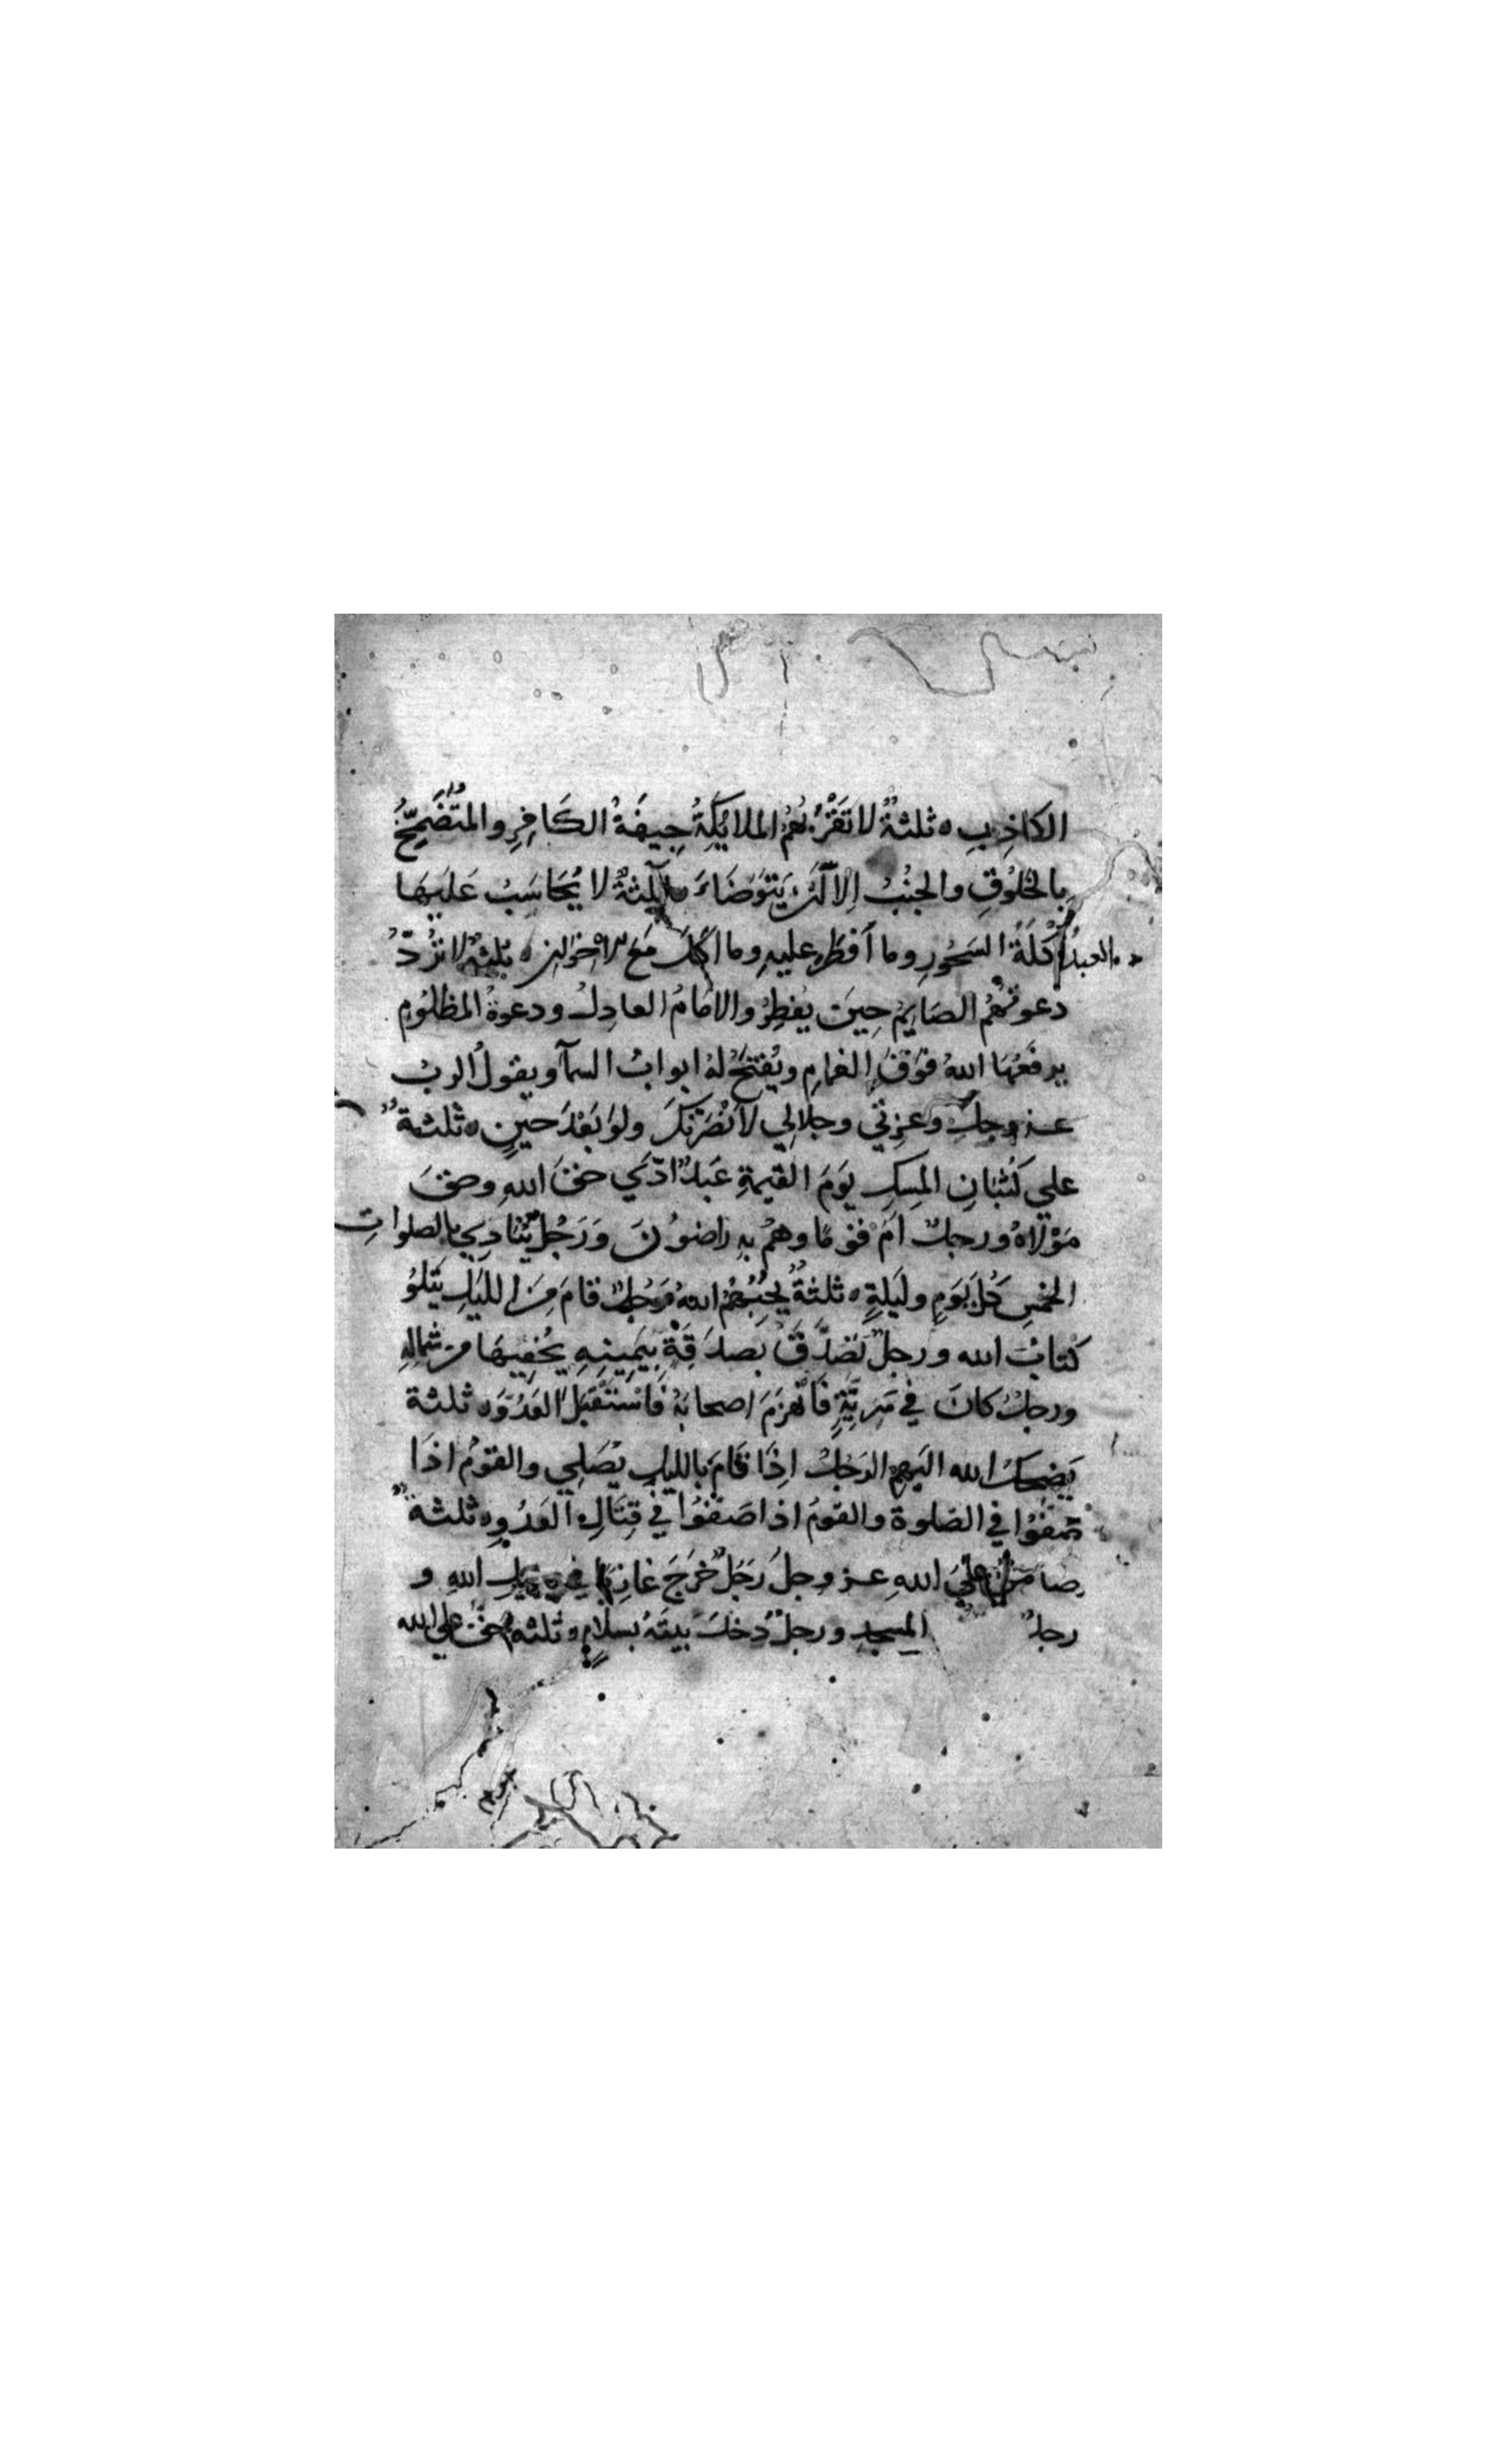 الكاذِبِ ه ثلثةٌ لا تَقْرُبُهُمُ الملايِكةُ جِيفَةُ الكَافِرِ والمُتَضَمِّخُ
بِالخَلُوْقِ والجنُبُ اِلاّ اَنْ يَتَوَضَاءَ ثلثةٌ لا يُحَاسَبُ عَليهَا
العبدُ اَكْلَةُ السَحُورِ وما اَفطَر عليهِ وما اكلَ مَعَ الاخوانِ ه ثلثةٌ لا تُرَدُّ
دَعوتهُم الصَايِمُ حِينَ يُفطِرُ والامَامُ العادِلُ ودعوةُ المظلُومِ
يرفَعُهَا اللهُ فَوقَ الغمامِ ويُفتَحُ لهُ ابوابُ السمآ ويقولُ الربُ
عز وجل وعِزتي وجلالي لاَنْصُرَنكَ ولَو بَعْدَ حينٍ ه ثلثةٌ
علي كُثبَانِ المِسكِ يَومَ القيمةِ عَبدٌ ادّي حقَ اللهِ وحقَ
مَوْلاهُ ورجلٌ اَمَ قومًا وهُم بهِ راضوُنَ وَرَجُلٌ يُنَادِي بالصلواتِ
الخمسِ كُل يَومٍ ولَيلةٍ ه ثلثةٌ يُحِبُهُمُ اللهُ رَجُلٌ قامَ مِنَ الليلِ يَتلوُ
كتابَ الله ورجلٌ تَصَدَّقَ بصدَقَةٍ بِيَمِينِهِ يُخفِيهَا من شماله
ورجلٌ كانَ في سَرِيَّةٍ فَانْهزَمَ اصحابهُ فَاسْتَقْبَلَ العَدُوَّ ه ثلثة
يَضحكُ الله اليهمِ الرَجلُ اِذَا قَامَ بالليلِ يُصَلي والقومُ اذَا
صَفوُا في الصَلوة والقومُ اذا صَفوُا في قِتَالِ العَدُوِ ه ثلثةٌ
ضامنٌ علَي اللهِ عز وجل رَجَلٌ خَرَجَ غازيًا في سبيل اللهِ و
رجلٌ المسجدِ ورجلٌ دَخلَ بيتَهُ بسلامٍ ه ثلثة حقٌ علي الله